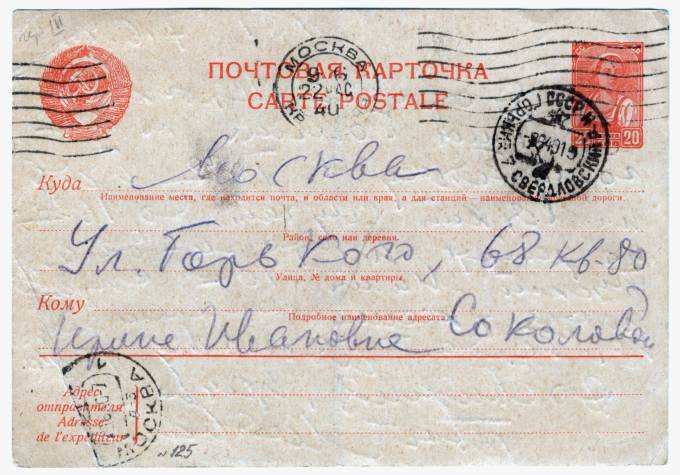 ПОЧТОВАЯ КАРТОЧКА
CARTE POSTALE
МОСКВА
9 - 16
40
СССР
ГОРЬКИЙ
СВЕРДЛОВСКИЙ
20
Куда Москва
Наименование места, где находится почта, и области или края, а для станций – наименование дороги.
Район, село или деревня.
Ул. Горького, 68 кв-80
Улица, № дома и квартиры.
Кому
Подробное наименование адресата
Ирине Ивановне Соколовой
МОСКВА
Адрес
отправителя
Adresse
de l'expéditeur
№ 125